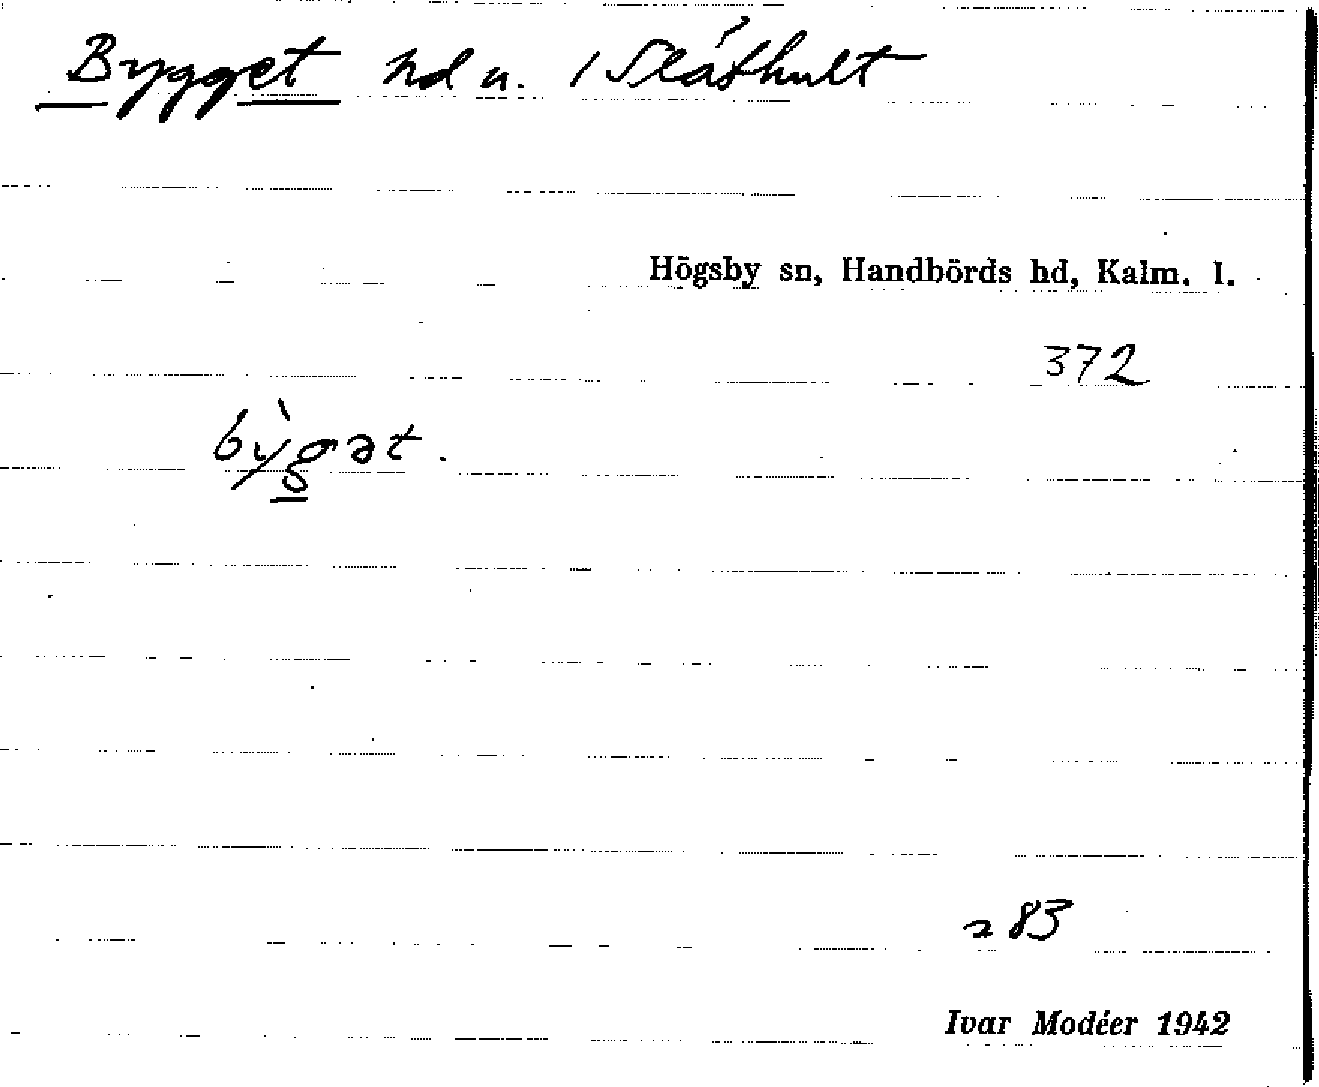 Bygget hd u. 1 Slåthult
Högsby sn, Handbörds hd, Kalm. l.
372
by̍gət.
283
Ivar Modéer 1942